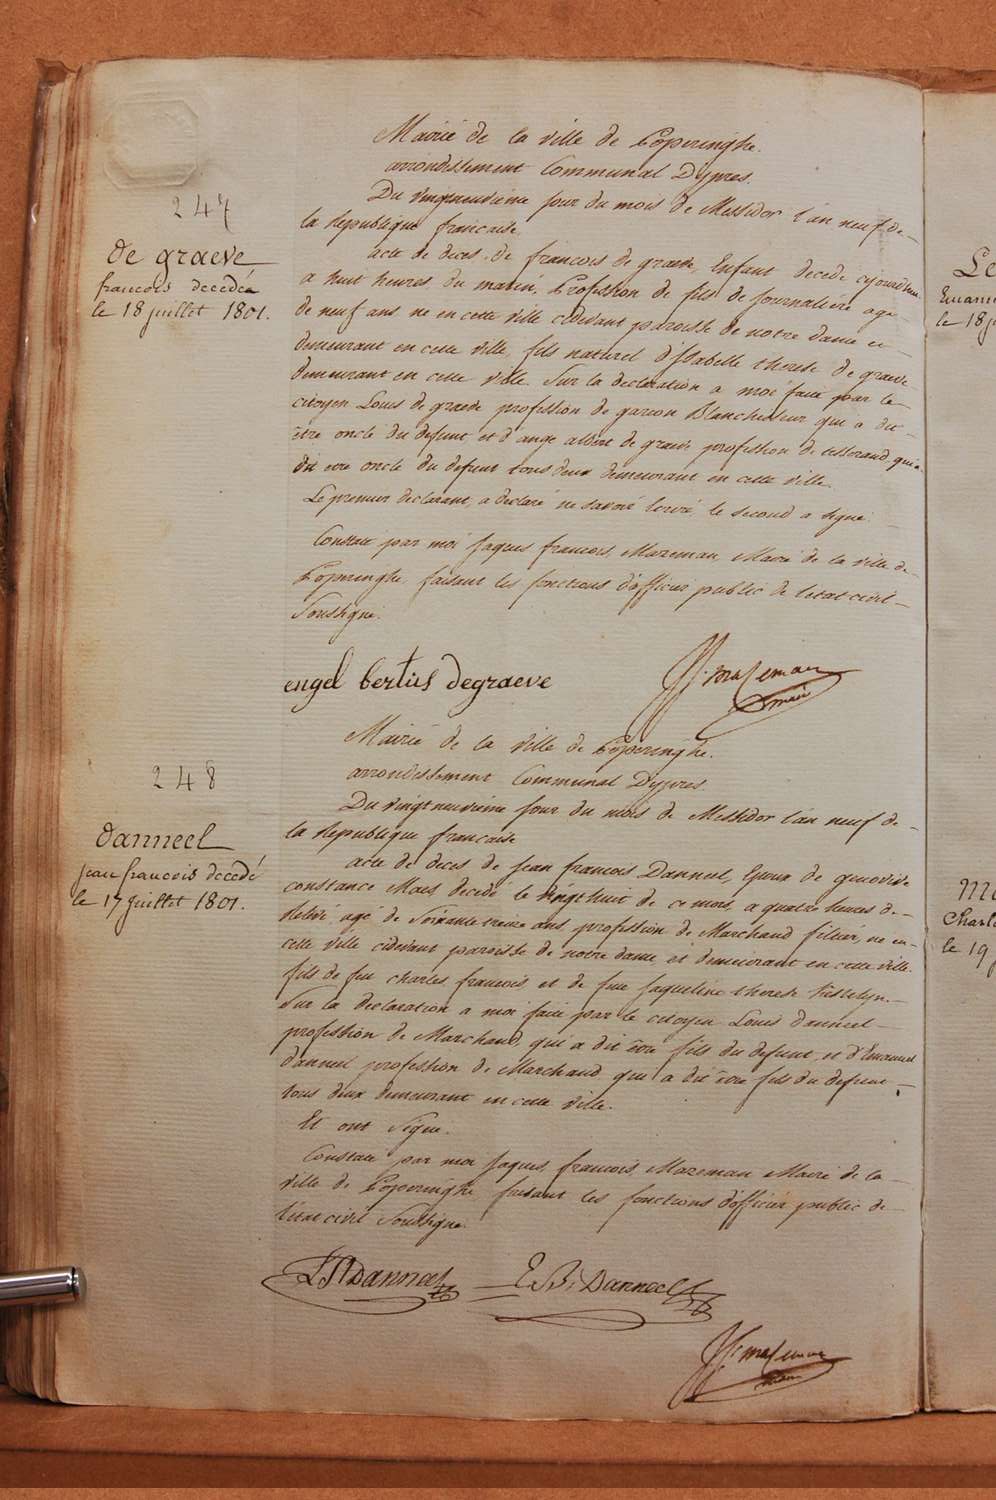 247
de graeve
francois decedéa
le 18 juillet 1801.
Mairié de la ville de Poperinghe.
arrondissement Communal Dypres.
Du vingtneuvieme jour du mois de Messidor l'an neuf de
la Republique francaise
acte de deces de francois de graeve, Enfant decede cejourdhui
a huit heures du matin, Profession de fils de journaliere agé
de neuf ans né en cette ville cidevant paroisse de notre dame et
demeurant en cette ville, fils naturel d'Isabelle therese de graeve
demeurant en cette ville. Sur la declaration a moi faite par le
citoyen Louis de graeve profession de garcon Blanchisseur qui a dit
être oncle du defunt, et d'ange albert de graeve profession de tisserand qui a
dit etre oncle du defunt tous deux demeurant en cette ville.
Le premier declarant, a declaré ne savoir ecrire, le second a signé.
Constaté par moi Jaques francois Mazeman, Mairé de la ville de
Poperinghe, faisant les fonctions d'officier public de l'etat civil
Soussigné.
engel bertus degraeve
JJ. mazeman
maire
248
danneel
jean francois decedé
le 17 juillet 1801.
Mairié de la ville de Poperinghe.
arrondissement Communal Dypres
Du vingtneuvieme jour du mois de Messidor l'an neuf de
la Republique francaise
acte de deces de Jean francois Danneel, Epoux de genovive
constance Maes, decedé le vingt huit de ce mois, a quatre heures de
relivé agé de Soixante treize ans, profession de Marchand filtier, né en
cette ville cidevant paroisse de notre dame, et demeurant en cette ville.
fils de feu charles francois et de feue Jaqueline therese
Sur la declaration a moi faite par le citoyen Louis danneel
profession de Marchand qui a dit être fils du defunt, et d'Emanuel
danneel profession de Marchand qui a dit être fils du defunt
tous deux demeurant en cette ville.
Et ont Signe.
Constaté par moi Jaques francois Mazeman Mairé de la
ville de Poperinghe faisant les fonctions d'officier public de
l'etat civil Soussigné.
Danneel
E: B: Danneel
JJ: mazeman
maire
Le
Emanu
le 18 j
Ma
Charle
le 19 j